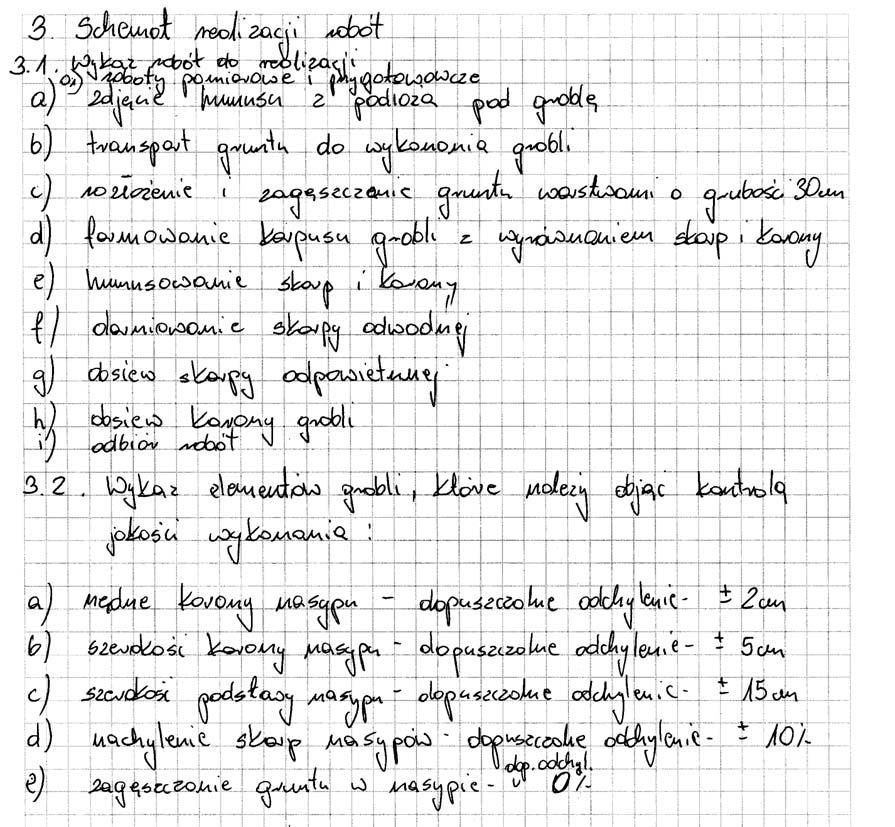 3. Schemat realizacji robót
3.1. Wykaz robót do realizacji
0a) roboty pomiarowe i przygotowawcze
a) zdjęcie humusu z podłoża pod groblę
b) transport gruntu do wykonania grobli
c) rozłożenie i zagęszczanie gruntu warstwami o grubości 30cm
d) formowanie korpusu grobli z wyrównaniem skarp i korony
e) humusowanie skarp i korony
f) darniowanie skarpy odwodnej
g) obsiew skarpy odpowietrznej
h) obsiew korony grobli
i) odbiór robót
3.2. Wykaz elementów grobli, które należy objąć kontrolą
jakości wykonania:
a) rzędne korony nasypu - dopuszczalne odchylenie - ± 2cm
b) szerokość korony nasypu - dopuszczalne odchylenie - ± 5cm
c) szerokość podstawy nasypu - dopuszczalne odchylenie - ± 15cm
d) nachylenie skarp nasypów - dopuszczalne odchylenie - ± 10%
e) zagęszczanie gruntu w nasypie - dop. odchyl. 0%